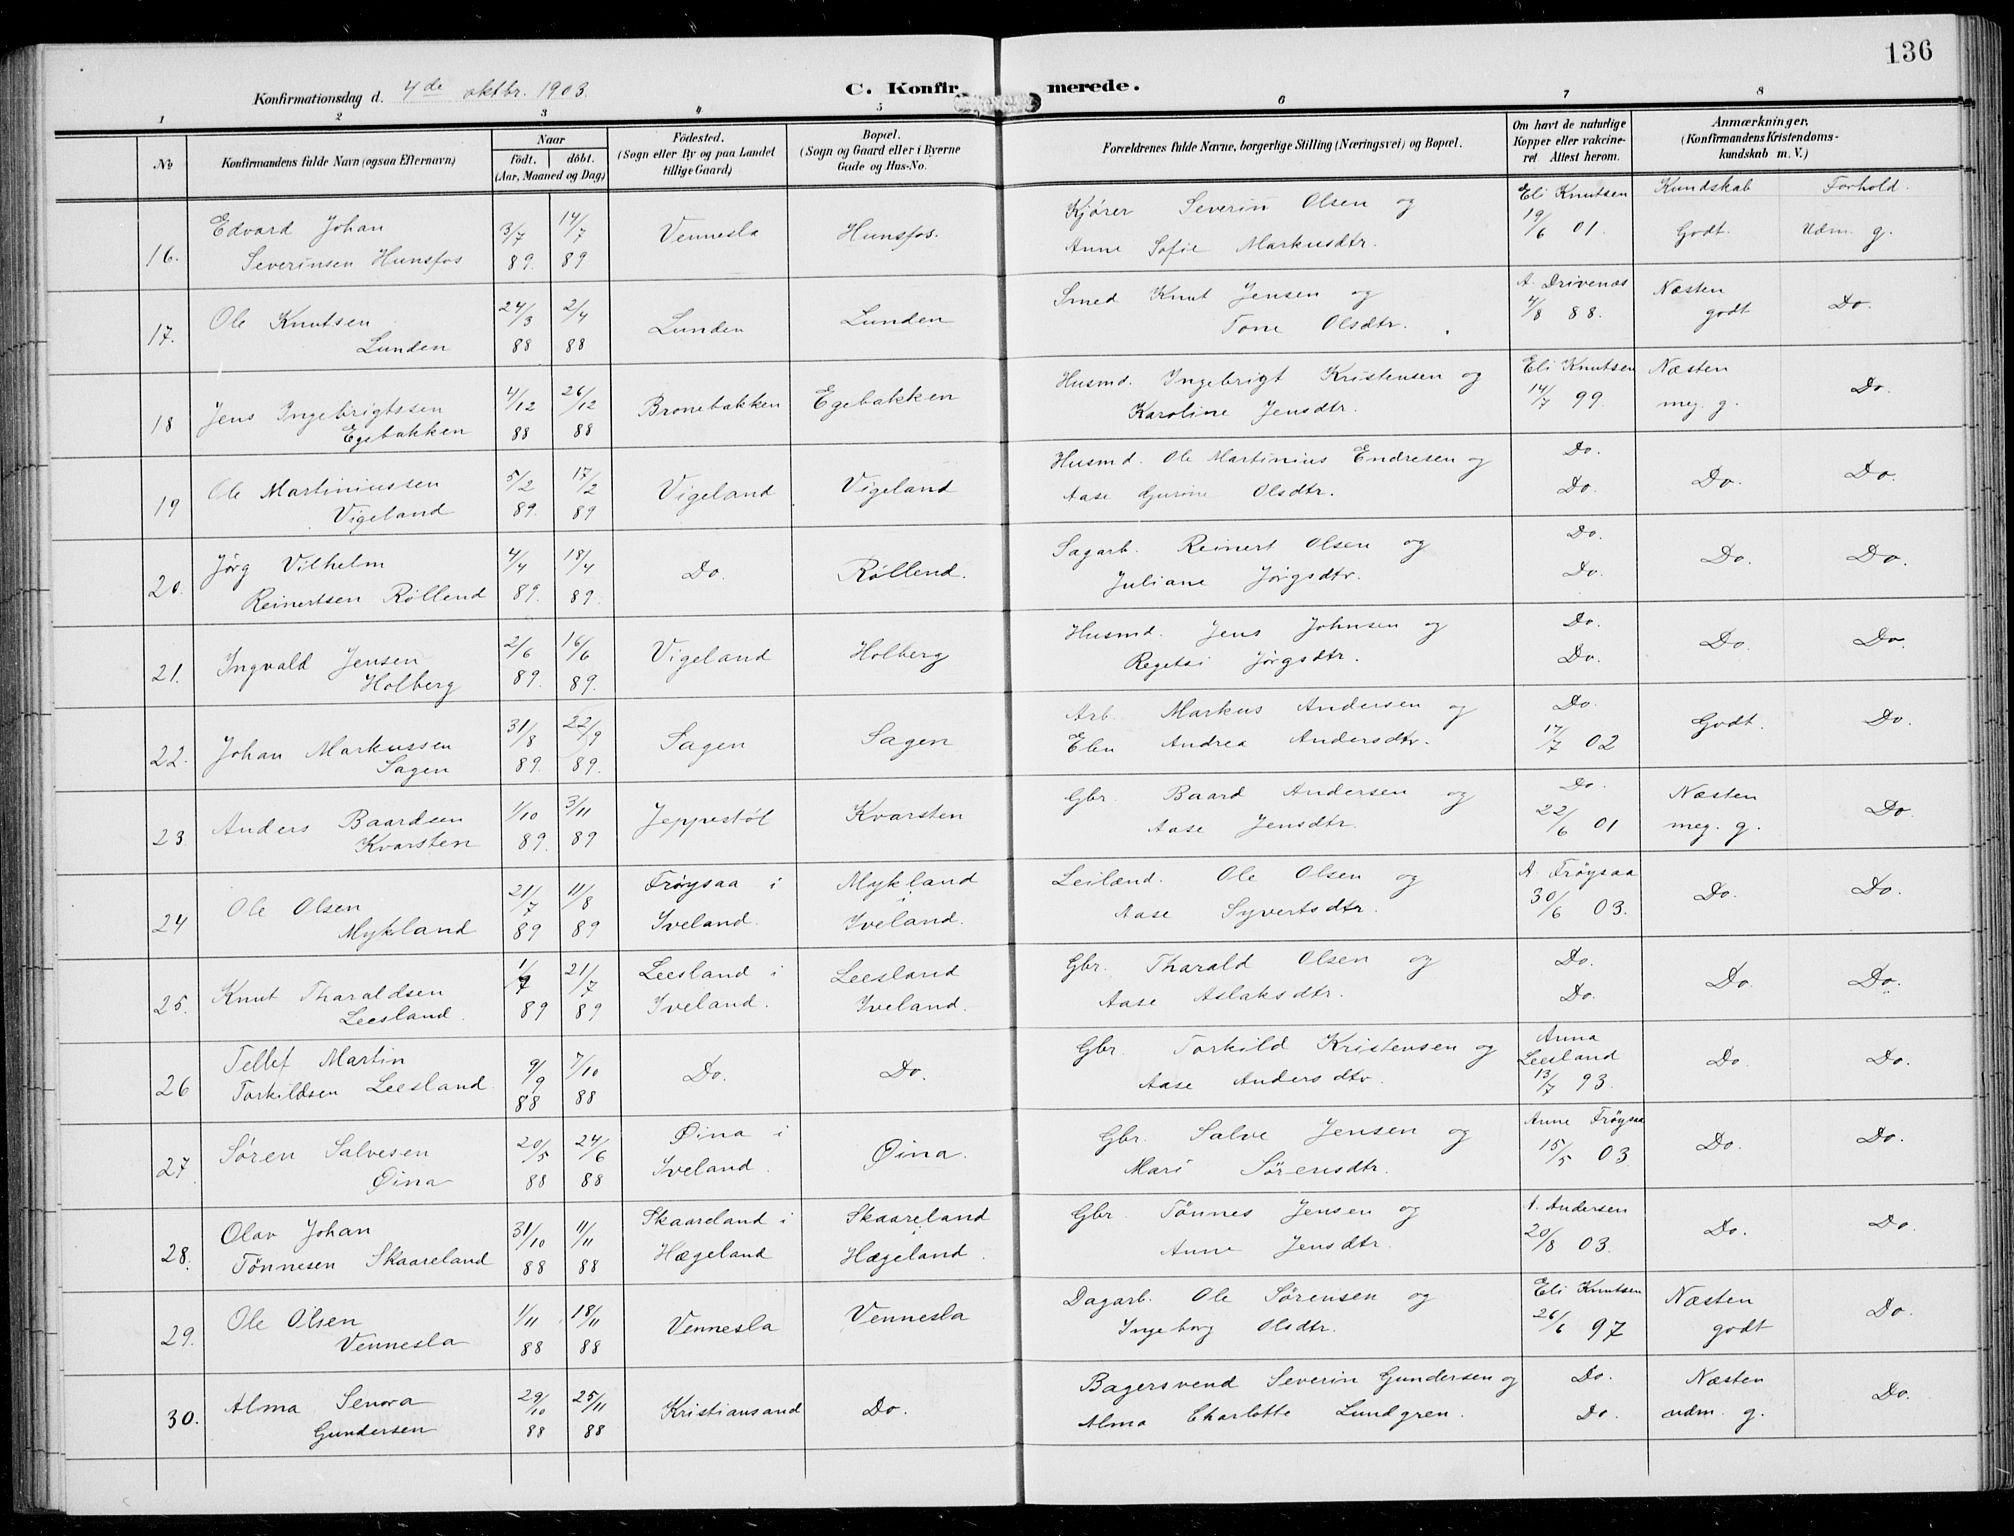 136
Konfirmationsdag d. 4de oktbr. 1903.
C. Konfirmerede.
1 2 3 4 5 6 7 8
No
Konfirmandens fulde Navn (ogsaa Efternavn)
Naar
født. døbt.
(Aar, Maaned og Dag)
Fødested.
(Sogn eller By og paa Landet
tillige Gaard)
Bopæl.
(Sogn og Gaard eller i Byerne
Gade og Hus-No.
Forældrenes fulde Navne, borgerlige Stilling (Næringsvei) og Bopæl.
Om havt de naturlige
Kopper eller vakcine-
ret. Attest herom.
Anmærkninger.
(Konfirmandens Kristendoms-
kundskab m. V.)
Kundskab Forhold.
16. Edvard Johan 3/7 14/7 Vennesla Hunsfos. Kjører Severin Olsen og Eli Knutsen
Severinsen Hunsfos 89. 89 Anne Sofie Markusdtr. 19/6 01. Godt. Udm. g.
17. Ole Knutsen 24/3 2/4 Lunden Lunden Smed Knut Jensen og A. Drivenæs Næsten Do.
Lunden 88 88 Tone Olsdtr. 4/8 88. godt
18 Jens Ingebrigtssen 4/12 26/12 Bronebakken Egebakken Husmd. Ingebrigt Kristensen og Eli Knutsen Næsten Do.
Egebakken 88 88 Karoline Jensdtr. 14/7 99. meg. g.
19 Ole Martiniussen 5/2 17/2 Vigeland Vigeland Husmd. Ole Martinius Endresen og Do. Do. Do.
Vigeland 89. 89 Aase Gurine Olsdtr. Do.
20. Jørg Vilhelm 4/4 18/4 Do. Røllend. Sagarb. Reinert Olsen og Do. Do. Do.
Reinertsen Røllend 89. 89. Juliane Jørgsdtr. Do.
21. Ingvald Jensen 2/6 16/6 Vigeland Holberg Husmd. Jens Johnsen og Do. Do. Do.
Holberg 89. 89. Jørgsdtr. Do.
22. Johan Markussen 31/8 22/9 Sagen Sagen Arb. Markus Andersen og Do. Godt. Do.
Sagen 89. 89. Elen Andrea Andersdtr. 17/7 02
23. Anders Baardsen 1/10 3/11 Jeppestøl Kvarsten Gbr. Baard Andersen og Do. Næsten Do.
Kvarsten 89. 89 Aase Jensdtr. 22/6 01 meg. g.
24 Ole Olsen 21/7 11/8 Frøysaa i Mykland Leilænd. Ole Olsen og A. Frøysaa Do. Do.
Mykland 89 89 Iveland. Iveland. Aase Syvertsdtr. 30/6 03.
25. Knut Tharaldsen 1/7 21/7 Leesland i Leesland Gbr. Tharald Olsen og Do. Do. Do.
Leesland. 89 89 Iveland. Iveland. Aase Aslaksdtr. Do.
26 Tellef Martin 9/9 7/10 Do. Do. Gbr. Torkild Kristensen og Anna Leesland Do. Do.
Torkildsen Leesland. 88 88 Aase Andersdtr. 13/7 93.
27. Søren Salvesen 20/5 24/6 Øina i Øina. Gbr. Salve Jensen og Anne Frøysaa Do. Do.
Øina 88 88 Iveland. Mari Sørensdtr. 15/5 03.
28. Olav Johan 31/10 11/11 Skaareland i Skaareland Gbr. Tønnes Jensen og A. Andersen Do. Do.
Tønnesen Skaareland 88 88 Hægeland Hægeland. Anne Jensdtr. 20/8 03.
29. Ole Olsen 1/11 18/11 Vennesla Vennesla Dagarb. Ole Sørensen og Eli Knutsen Næsten Do.
Vennesla 88 88 Ingeborg Olsdtr. 26/6 97 godt
30. Alma Senora 29/10 25/11 Kristiansand Do. Bagersvend Severin Gundersen og Do. Næsten Do.
Gundersen 88 88 Alma Charlotte Lundgren. Do. udm. g.